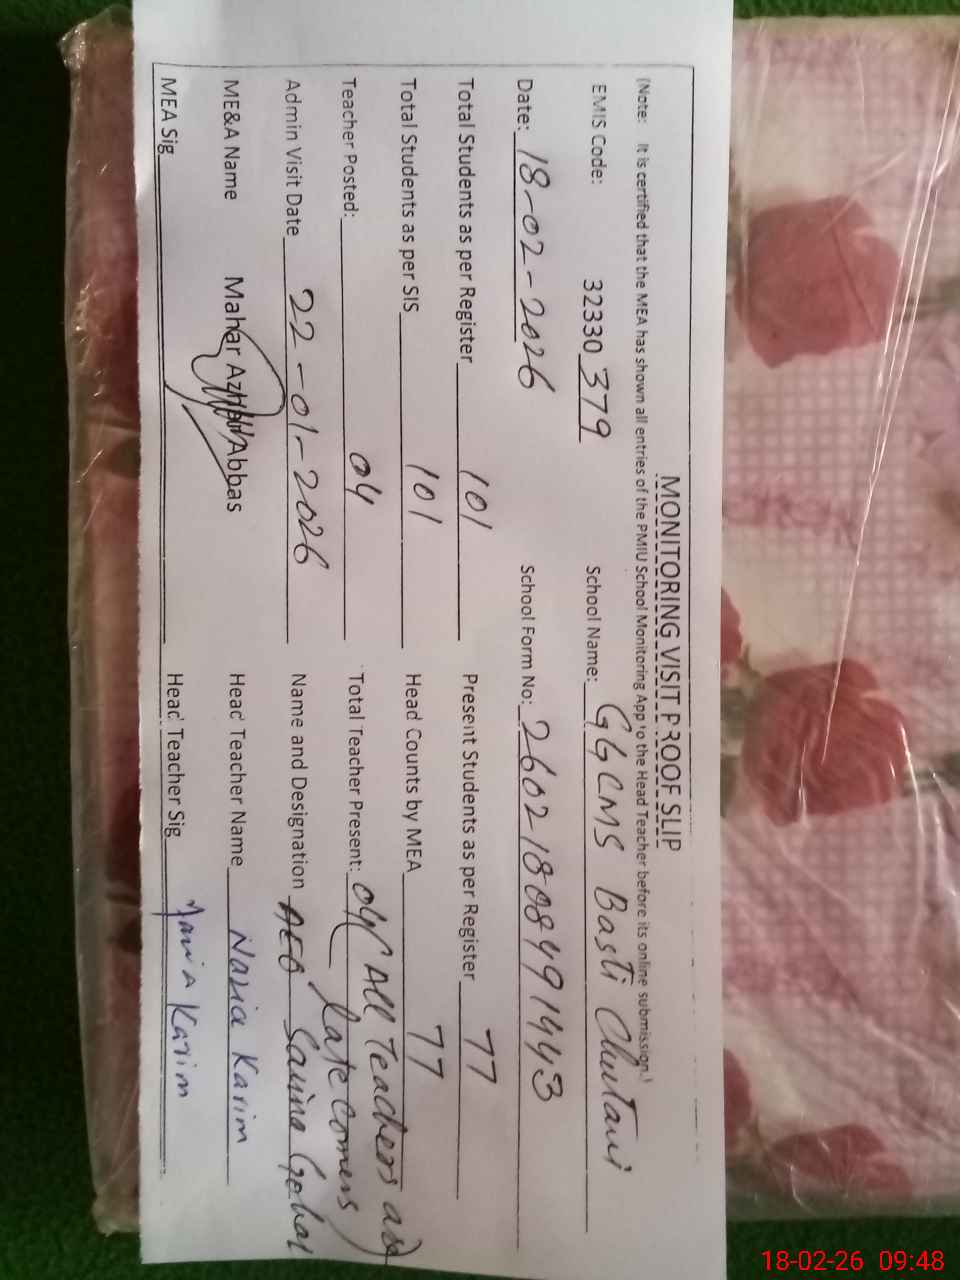 MONITORING VISIT PROOF SLIP
(Note: It is certified that the MEA has shown all entries of the PMIU School Monitoring App to the Head Teacher before its online submission.)
EMIS Code: 32330 379 School Name: GGCMS Basti Chutani
Date: 18-02-2026 School Form No: 260218084991443
Total Students as per Register 101 Present Students as per Register 77
Total Students as per SIS 101 Head Counts by MEA 77
Teacher Posted: 04 Total Teacher Present: 04 (All Teachers as late comers)
Admin Visit Date 22-01-2026 Name and Designation AEO Saima
ME&A Name Mahar Abbas Head Teacher Name Nazia Karim
MEA Sig Head Teacher Sig Nazia Karim
18-02-26 09:48